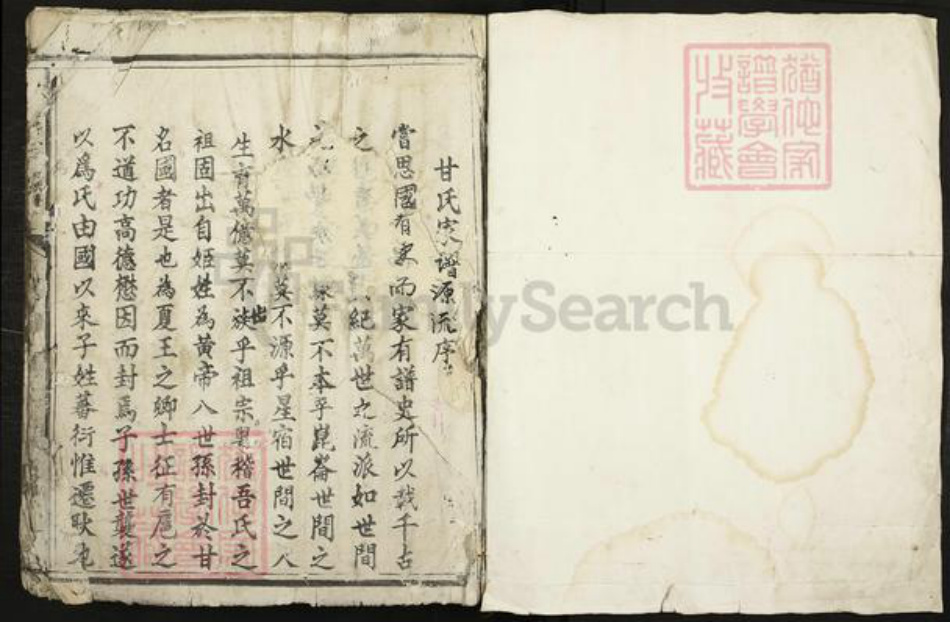 甘氏宗譜源流序
嘗思國有史而家有譜史所以載千古
之 紀萬世之流派如世間
莫不本乎崑崙世間之
水 莫不源乎星宿世間之人
生有萬億莫不從乎祖宗粵稽吾氏之
世
祖固出自姬姓為黃帝八世孫封於甘
名國者是也為夏王之卿士征有扈之
不道功高德懋因而封焉子孫世襲遂
以為氏由國以來子姓蕃衍惟遷
猶他家
譜學會
收藏
FamilySearch